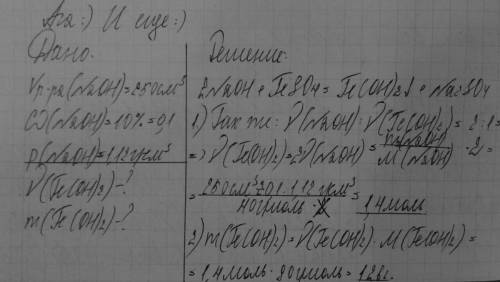 Ага:) И еще:)
Дано:
Vр-ра(NaOH)=250см³
ω(NaOH)=10%=0,1
ρ(NaOH)=1,12г/см³
ν(Fe(OH)₂)-?
m(Fe(OH)₂)-?
Решение:
2NaOH+FeSO₄=Fe(OH)₂↓+Na₂SO₄
1) Так же: ν(NaOH):ν(Fe(OH)₂)=2:1=
=>ν(Fe(OH)₂)=2ν(NaOH)= m(NaOH)/M(NaOH) ·2=
= 250см³·0,1·1,12г/см³ / 40г/моль = 1,4моль
2) m(Fe(OH)₂)=ν(Fe(OH)₂)·M(Fe(OH)₂)=
=1,4моль·90г/моль=126г.